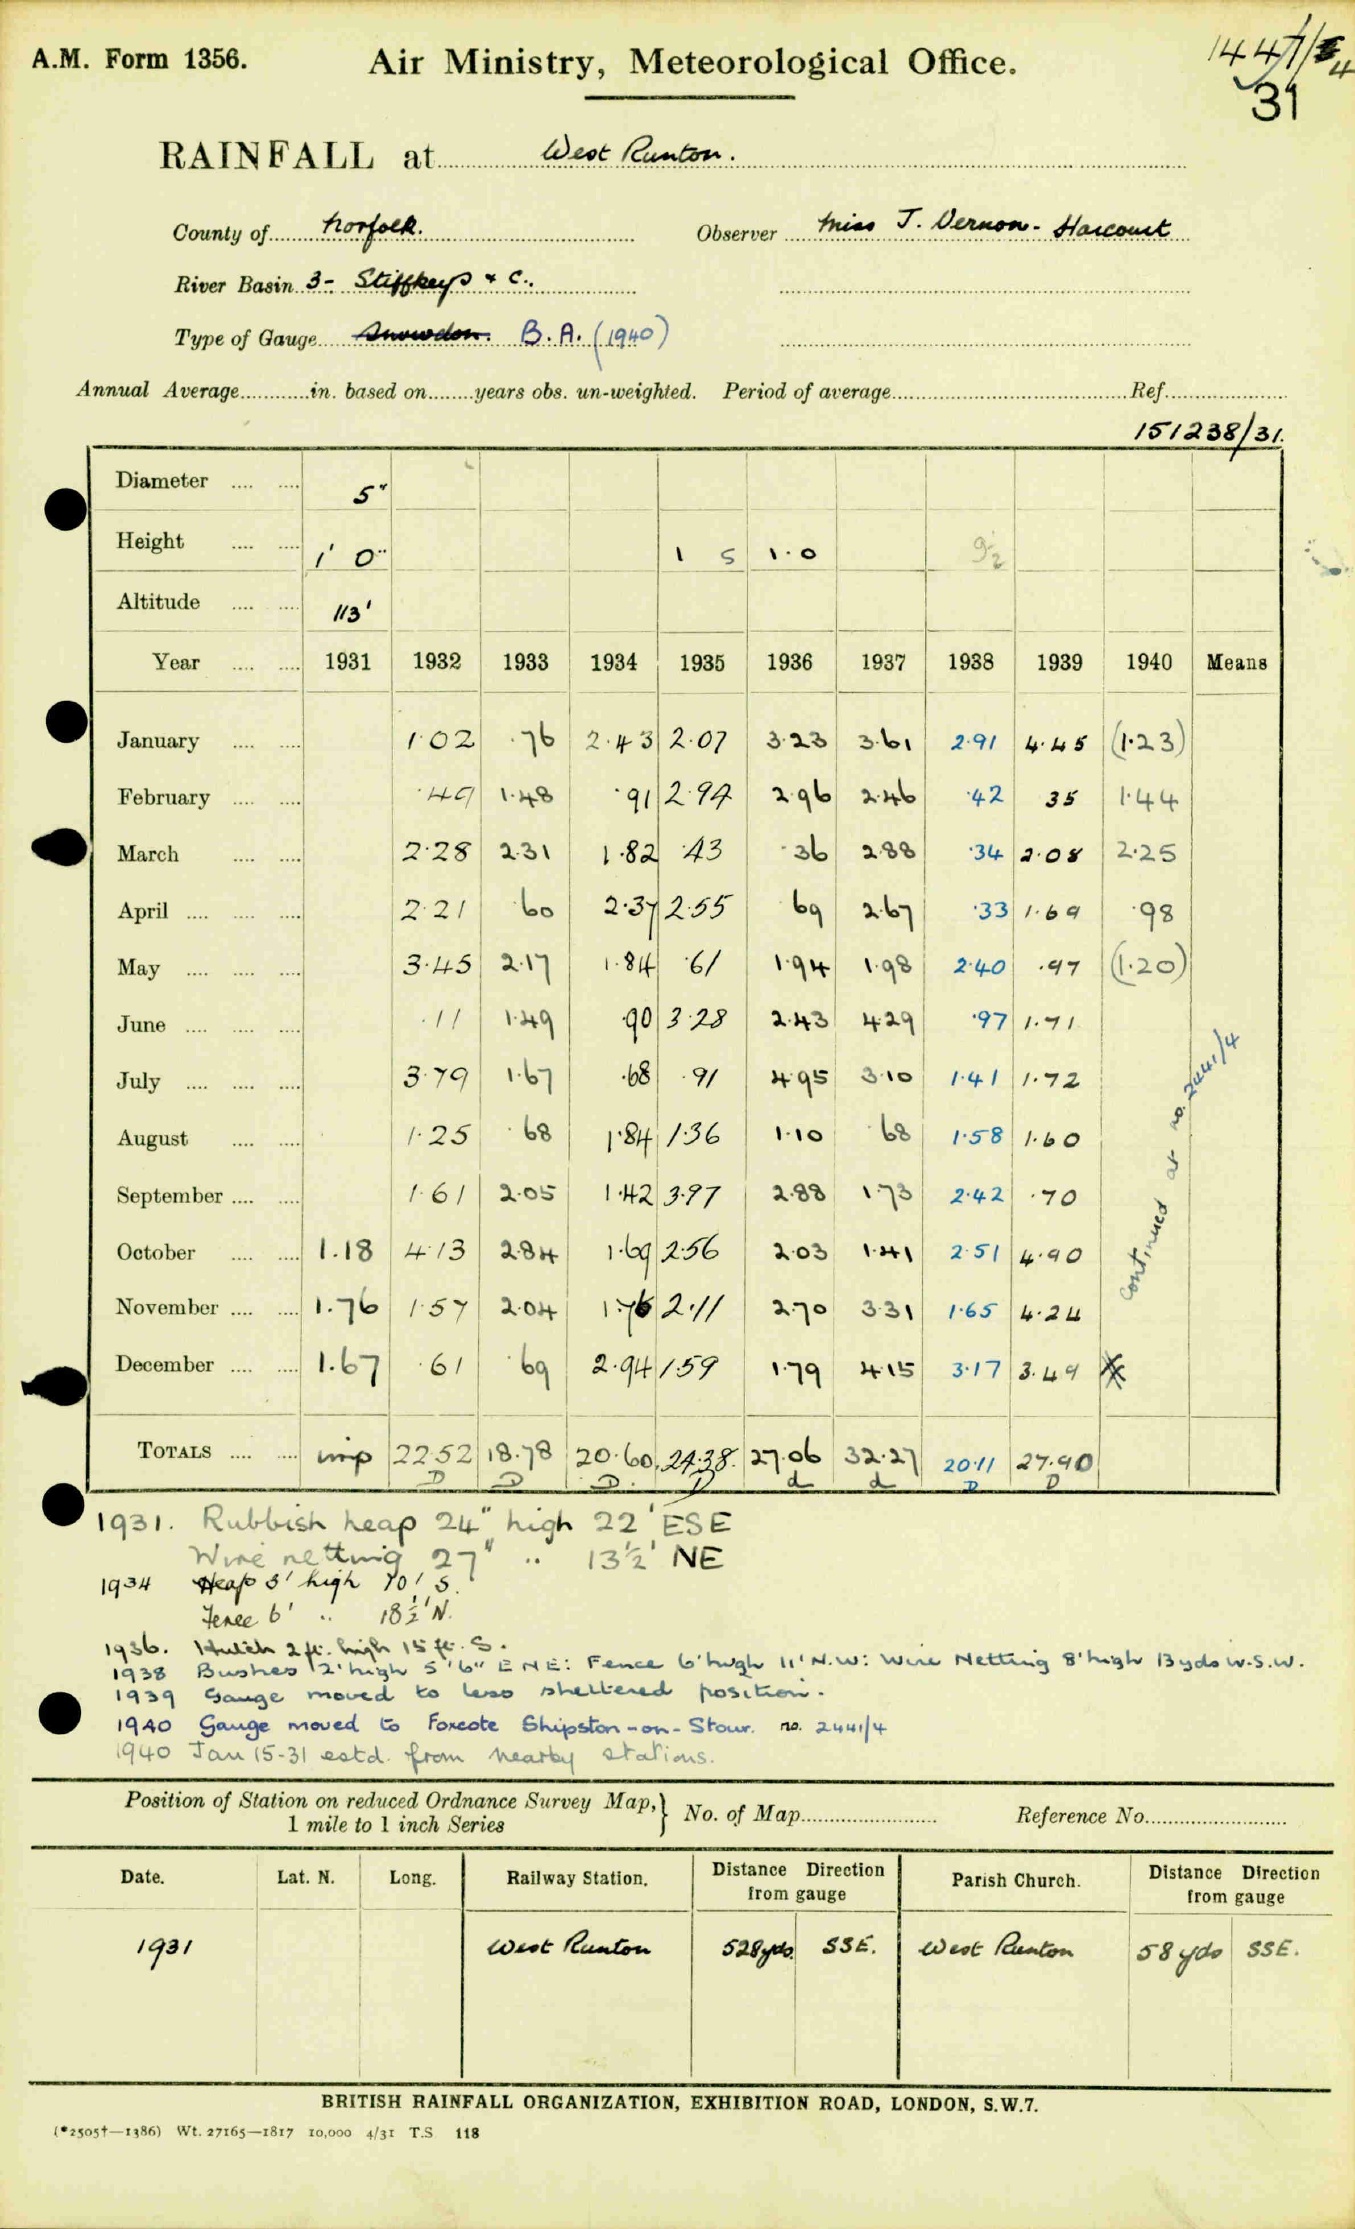 A.M. Form 1356. Air Ministry, Meteorological Office.
31
RAINFALL at West Runton.
County of Norfolk. Observer Miss J. Vernon-Harcourt
River Basin 3- Stiffkey & C.
Type of Gauge Snowdon. B.A. (1940)
Annual Average in. based on years obs. un-weighted. Period of average Ref.
151238/31.
Diameter 5"
Height 1' 0" 1 5 1.0 9½
Altitude 113'
Year 1931 1932 1933 1934 1935 1936 1937 1938 1939 1940 Means
January 1.02 .76 2.43 2.07 3.23 3.61 2.91 4.45 (1.23)
February .49 1.48 .91 2.94 2.96 2.46 .42 35 1.44
March 2.28 2.31 1.82 .43 .36 2.88 .34 2.08 2.25
April 2.21 .60 2.37 2.55 69 2.67 .33 1.69 .98
May 3.45 2.17 1.84 .61 1.94 1.98 2.40 .97 (1.20)
June .11 1.49 .90 3.28 2.43 4.29 .97 1.71
July 3.79 1.67 .68 .91 4.95 3.10 1.41 1.72
August 1.25 .68 1.84 1.36 1.10 .68 1.58 1.60
September 1.61 2.05 1.42 3.97 2.88 1.73 2.42 .70
October 1.18 4.13 2.84 1.69 2.56 2.03 1.41 2.51 4.90
November 1.76 1.57 2.04 1.76 2.11 2.70 3.31 1.65 4.24
December 1.67 .61 .69 2.94 1.59 1.79 4.15 3.17 3.49
Continued at no. 2441/4
TOTALS imp 22.52 18.78 20.60 24.38 27.06 32.27 20.11 27.90
D D D D d d D D
1931. Rubbish heap 24" high 22' ESE
Wire netting 27" " 13½' NE
1934 Heap 3' high 10' S.
Fence 6' " 18½' N.
1936. Hutch 2 ft. high 15 ft. S.
1938 Bushes 2' high 5'6" ENE: Fence 6' high 11' N.W: Wire Netting 8' high 13yds W.S.W.
1939 Gauge moved to less sheltered position.
1940 Gauge moved to Foxcote Shipston-on-Stour. no. 2441/4
1940 Jan 15-31 estd. from nearby stations.
Position of Station on reduced Ordnance Survey Map, 1 mile to 1 inch Series } No. of Map Reference No.
Date. Lat. N. Long. Railway Station. Distance Direction from gauge Parish Church. Distance Direction from gauge
1931 West Runton 528yds. SSE. West Runton 58 yds SSE.
BRITISH RAINFALL ORGANIZATION, EXHIBITION ROAD, LONDON, S.W.7.
(*2505†—1386) Wt. 27165—1817 10,000 4/31 T.S 118